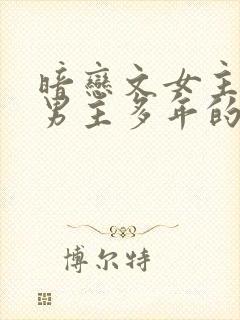 暗戀文女主
男主多年的
博尔特